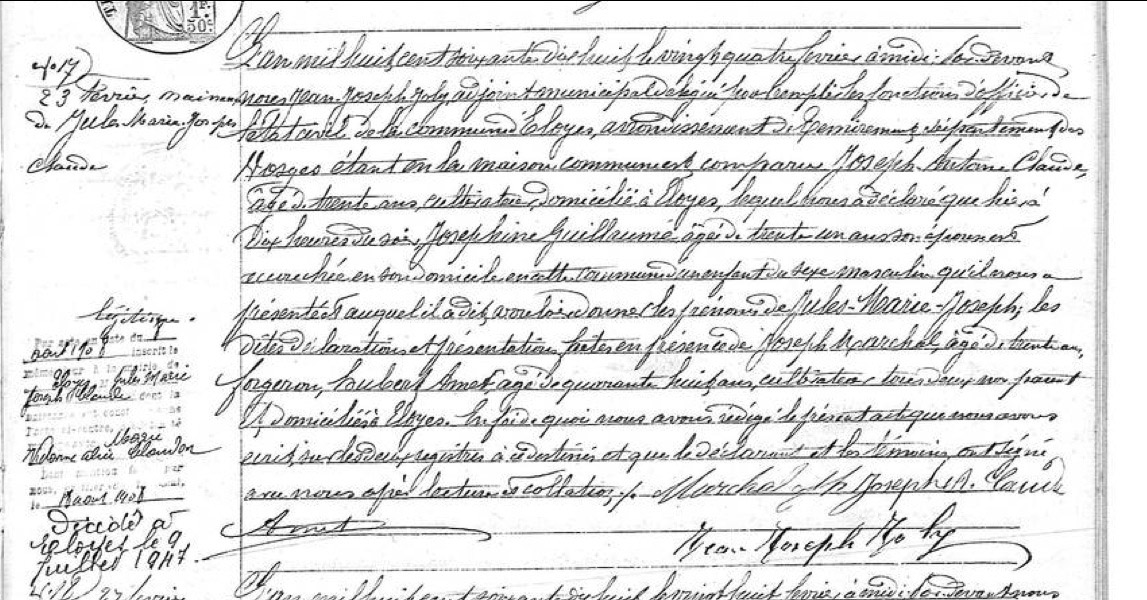 1 F.
50 c
No 17
23 février, naissance
de Jules-Marie-Joseph
Claude
L'an mil huit cent soixante dix huit, le vingt quatre février à midi: Par devant
nous Jean-Joseph Joly, adjoint municipal délégué pour remplir les fonctions d'officier de
l'état civil de la commune d'Eloyes, arrondissement de Remiremont, département des
Vosges étant en la maison commune est comparu Joseph-Antoine Claude,
âgé de trente ans, cultivateur, domicilié à Eloyes, lequel nous a déclaré que hier à
dix heures du soir, Joséphine Guillaume âgée de trente un ans son épouse est
accouchée en son domicile en cette commune d'un enfant du sexe masculin qu'il nous a
présenté et auquel il a dit vouloir donner les prénoms de Jules-Marie-Joseph; les
dites déclarations et présentations faites en présence de Joseph Marchal, âgé de trente ans,
forgeron, Hubert Amet, âgé de quarante huit ans, cultivateur tous deux non parent
et domiciliés à Eloyes. En foi de quoi nous avons rédigé le présent acte que nous avons
écrit sur les deux registres à ce destinés et que le déclarant et les témoins ont signé
avec nous après lecture et collation ./. Marchal Joseph A. Claude
Amet
Jean Joseph Joly
Par acte en date du
août 1908 inscrit le
Eloyes Jules Marie
Joseph Claude dont la
Marie
Claudon
18 août 1908
Décédé à
Eloyes le 9
juillet 1947.
27 février
L'an mil huit cent soixante dix huit, le vingt huit février à midi: Par devant nous